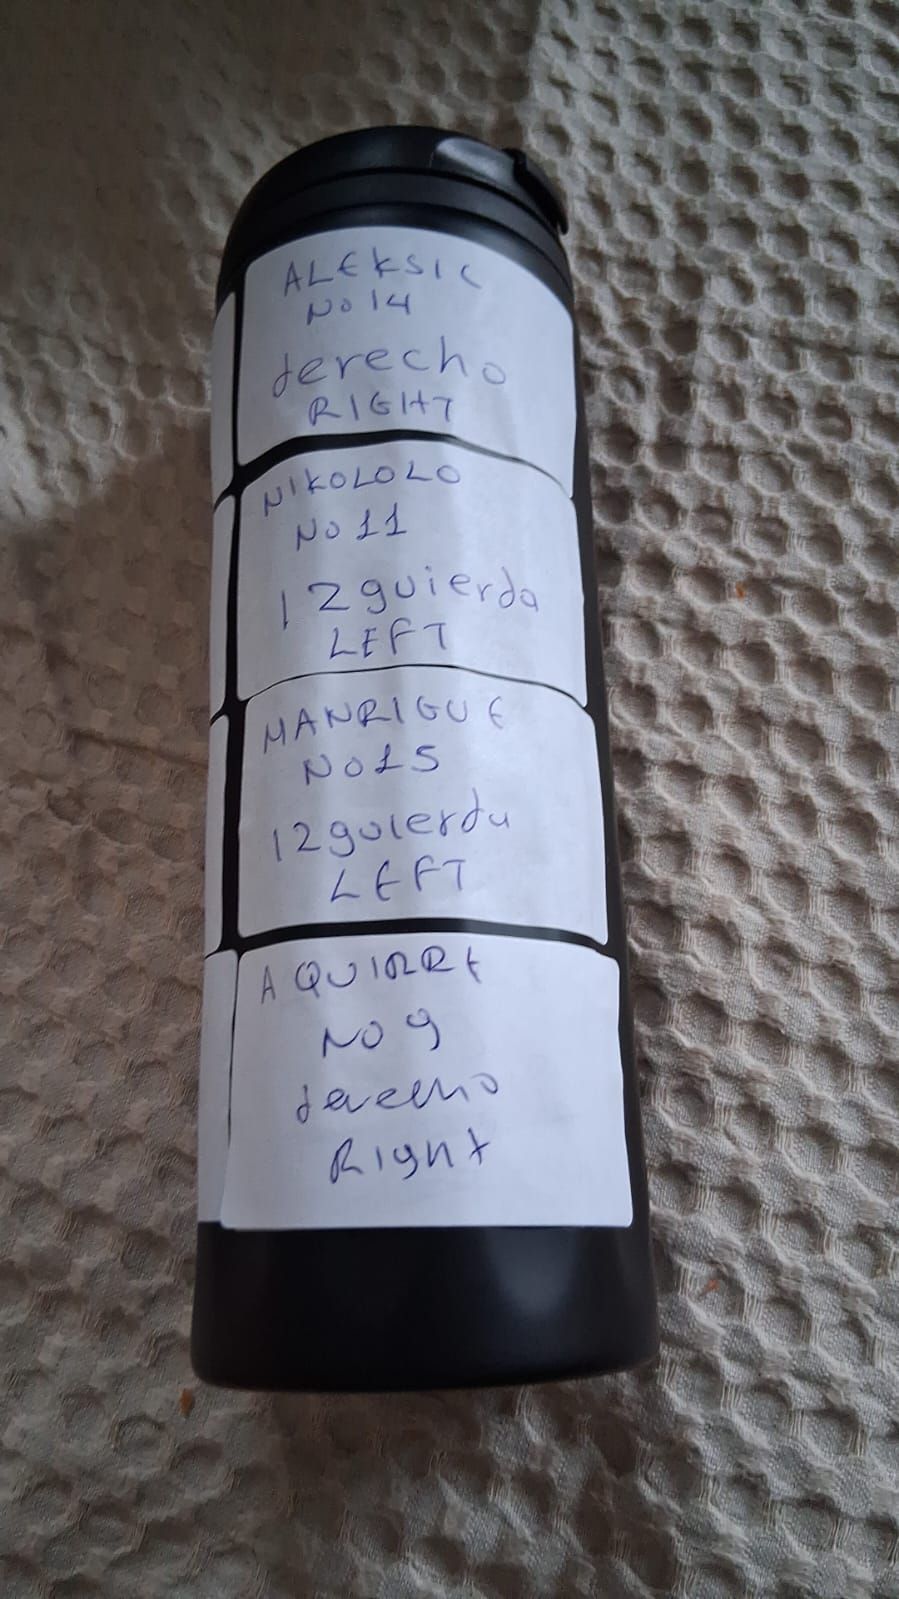 ALEKSIC
No 14
derecho
RIGHT
NIKOLOLO
No 11
IZguierda
LEFT
MANRIGUE
No 15
IZguierda
LEFT
AQUIRRE
No 9
derecho
Right